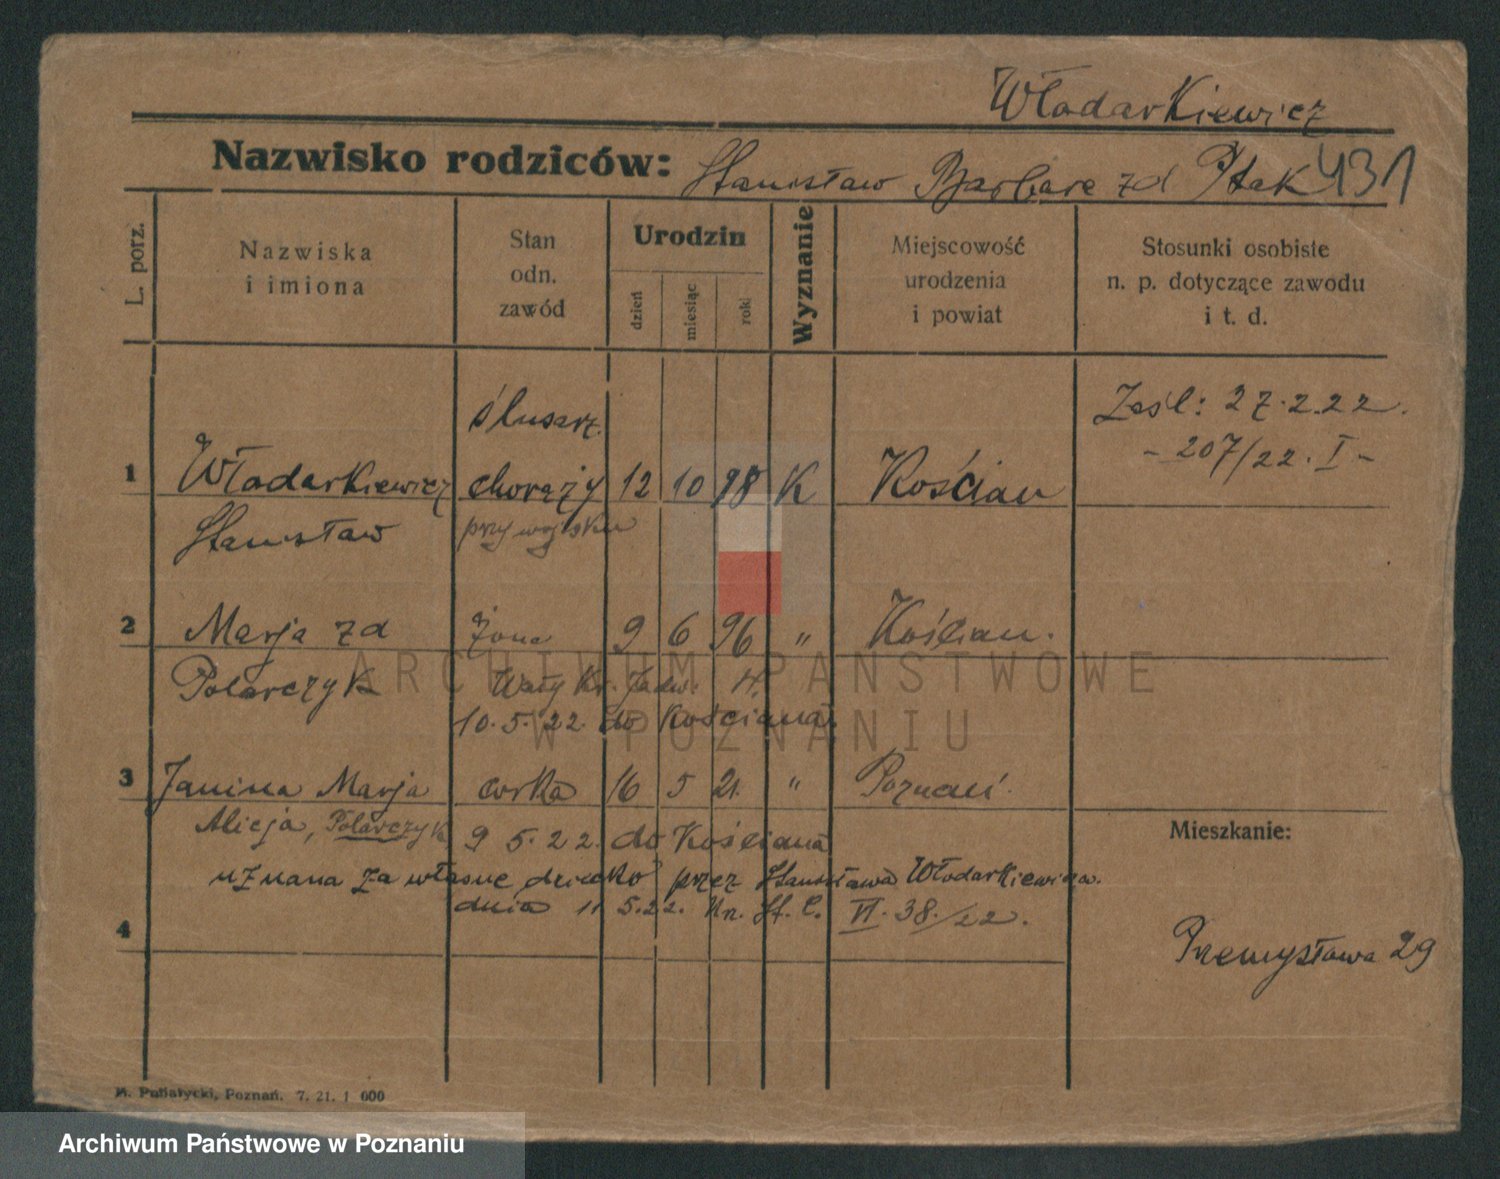 Włodarkiewicz
Nazwisko rodziców: Stanisław Barbara zd Ptak 431
L. porz.
Nazwiska
i imiona
Stan
odn.
zawód
Urodzin
dzień
miesiąc
rok
Wyznanie
Miejscowość
urodzenia
i powiat
Stosunki osobiste
n. p. dotyczące zawodu
i t. d.
ślusarz.
Zaśl: 27.2.22.
- 207/22. I -
1 Włodarkiewicz chorąży 12 10 98 K Kościan
Stanisław przy wojsku
2 Marja zd żona 9 6 96 " Kościan.
Polarczyk Wały Kr. Jadw.
10.5.22. do Kościana
3 Janina Marja córka 16 5 21 " Poznań.
Alicja, Polarczyk 9 5.22. do Kościana
uznana za własne dziecko przez Stanisława Włodarkiewicza.
dnia 11 5.22. Nr. St. C. VI. 38./22.
4
Mieszkanie:
Przemysłowa 29
Poznań. 7. 21. 1 000
ARCHIWUM PAŃSTWOWE
W POZNANIU
Archiwum Państwowe w Poznaniu